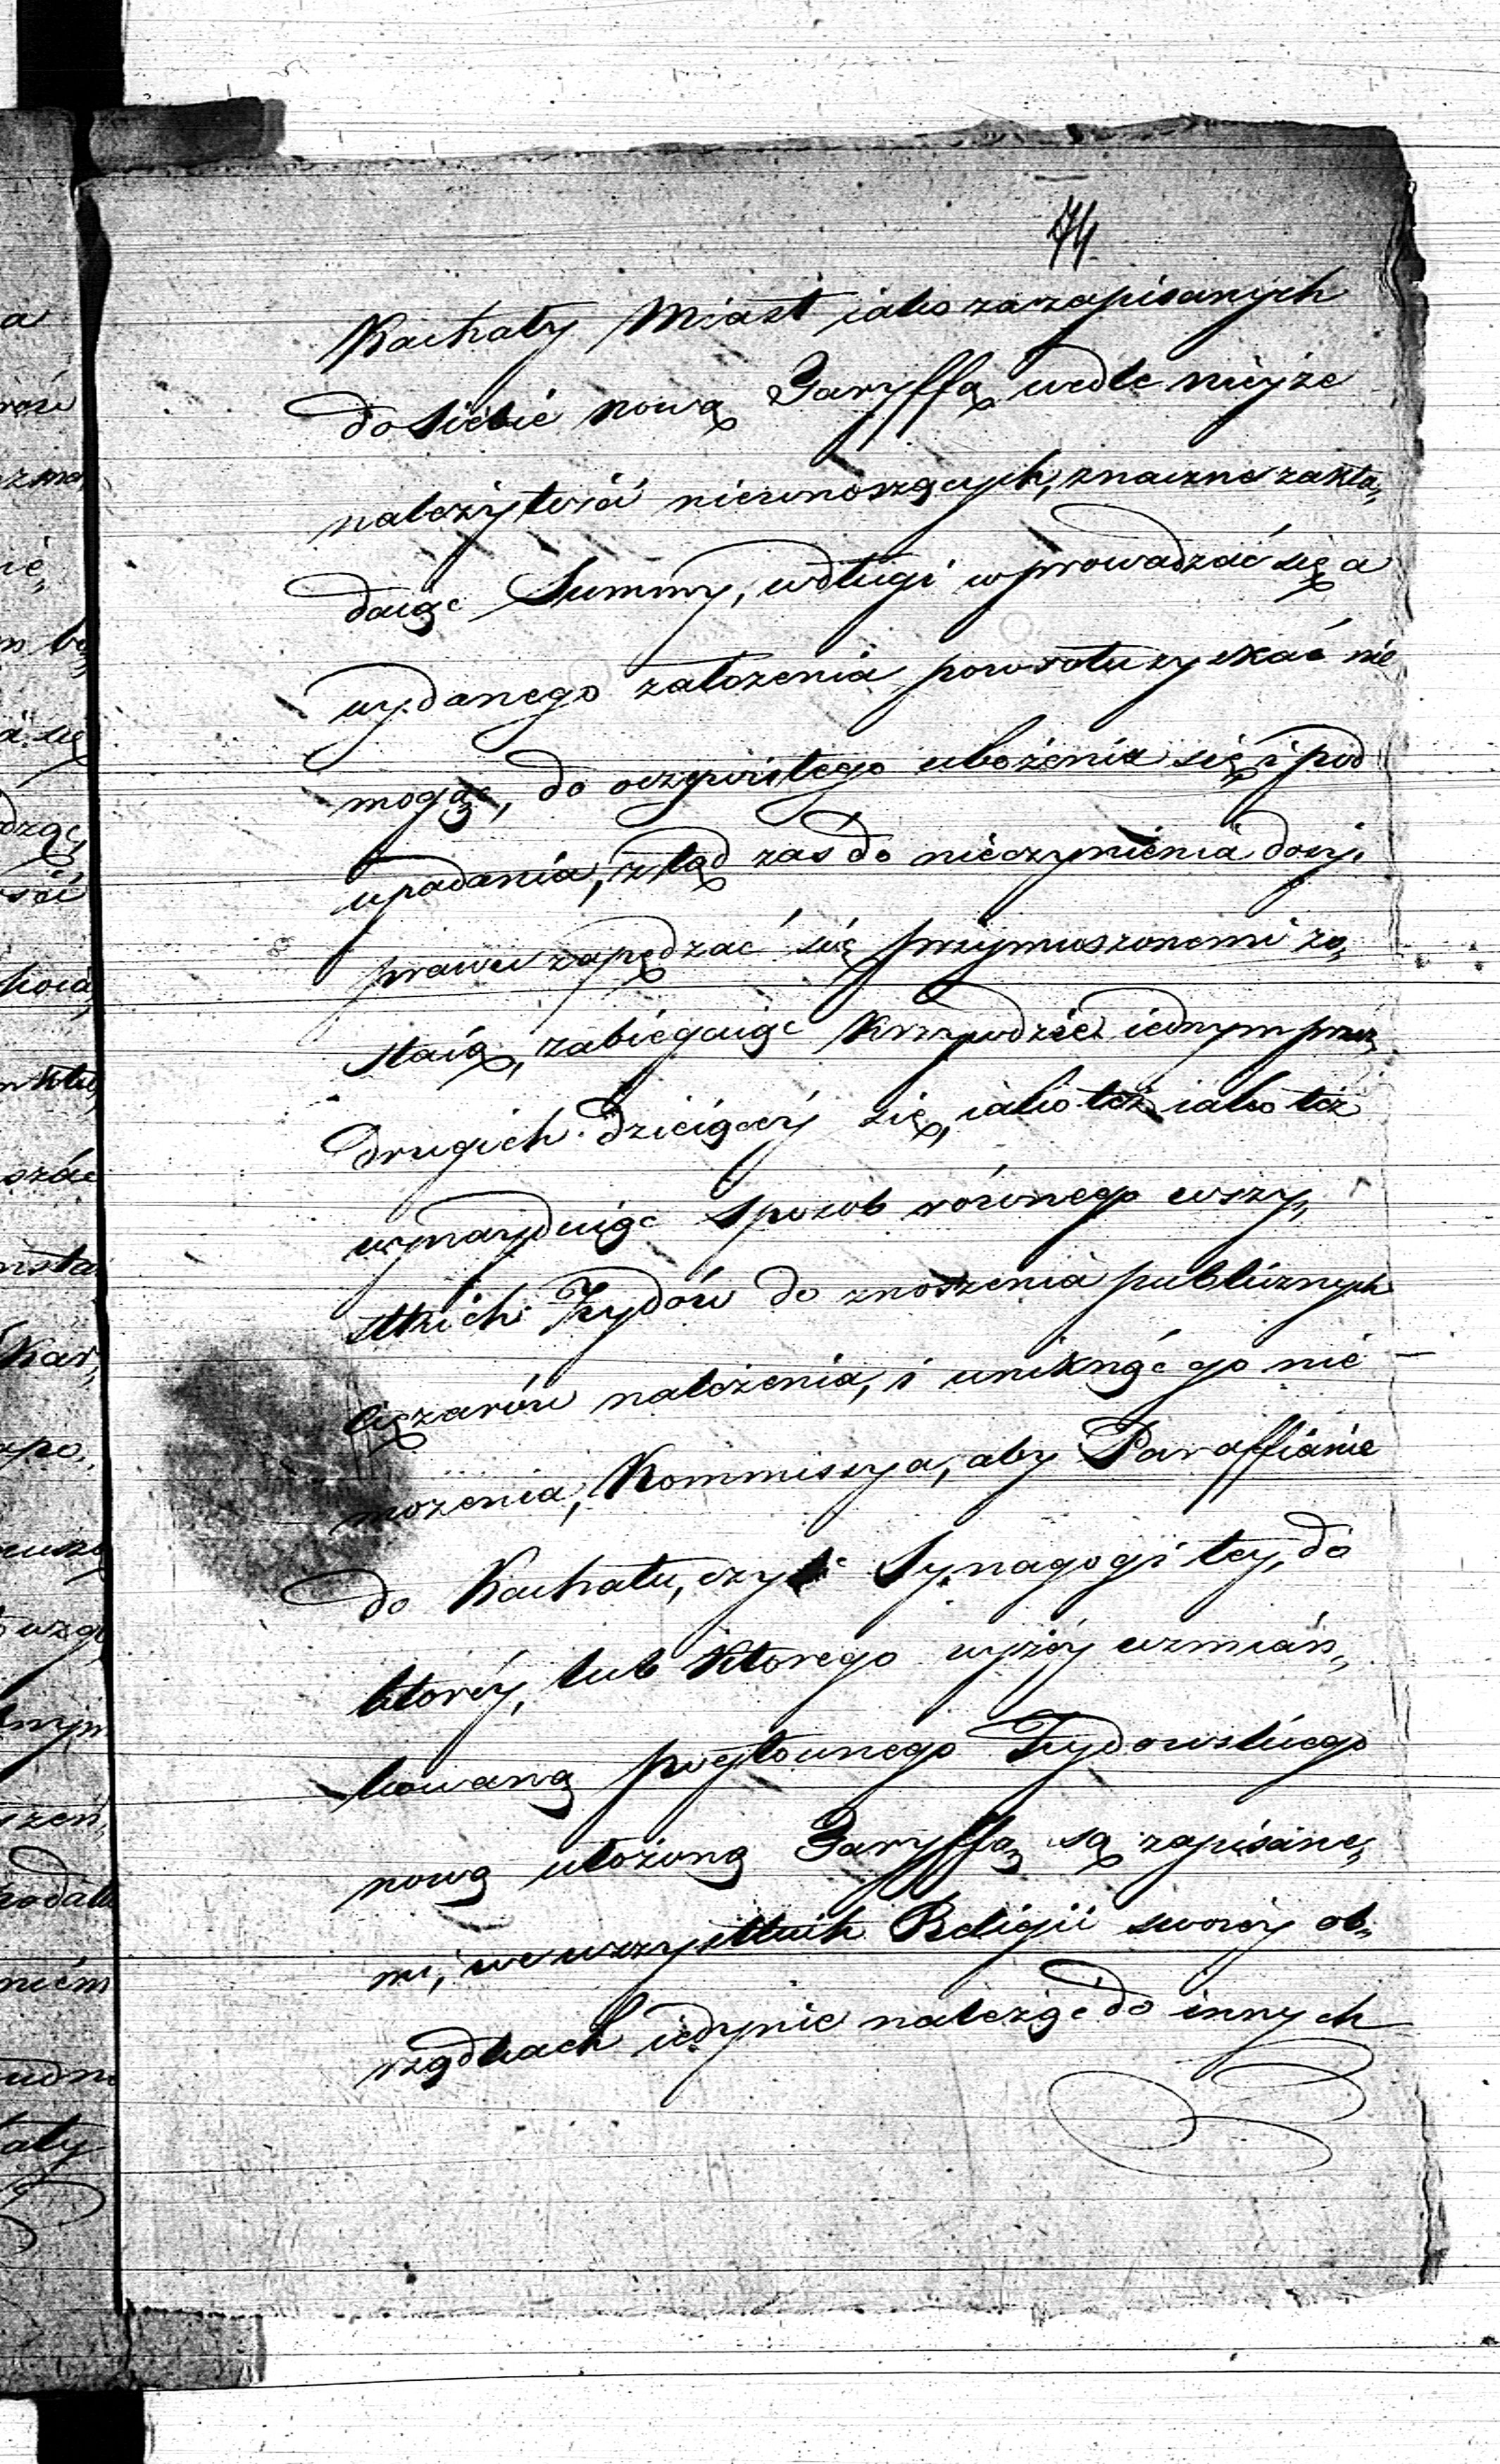 74
Kachały Miast iako za zapisanych
do siebie nową Taryffą wedle nieyże
należytości niewnoszących, znaczne zakła„
daiąc Summy, w długi wprowadzać się a
wydanego założenia powrotu zyskać nie
mogąc, do oczywistego ubożenia się i pod
upadania, ztąd zaś do nieczynienia dosyć
prawu zapędzać się przymuszonemi zo„
staią, zabiegaiąc krzywdzie iednym przez
drugich dzieiącey się, iako też iako też
wynayduiąc sposob równego wszy„
stkich Żydów do znoszenia publicznych
ciężarów należenia, i uniknąć go nie
możenia, Kommissya, aby Paraffianie
do Kachału, czyli Synagogi tey, do
ktorey, lub ktorego wyżey wzmian„
kowaną pogłownego Żydowskiego
nową ułożoną Taryffą są zapisane„
mi, we wszystkich Religii swoiey ob„
rządkach iedynie należąc do innych
a
ność
nie„
a się
dząc„
ości
szác
Kar„
apo„
szeń„
podatk
niém
ały